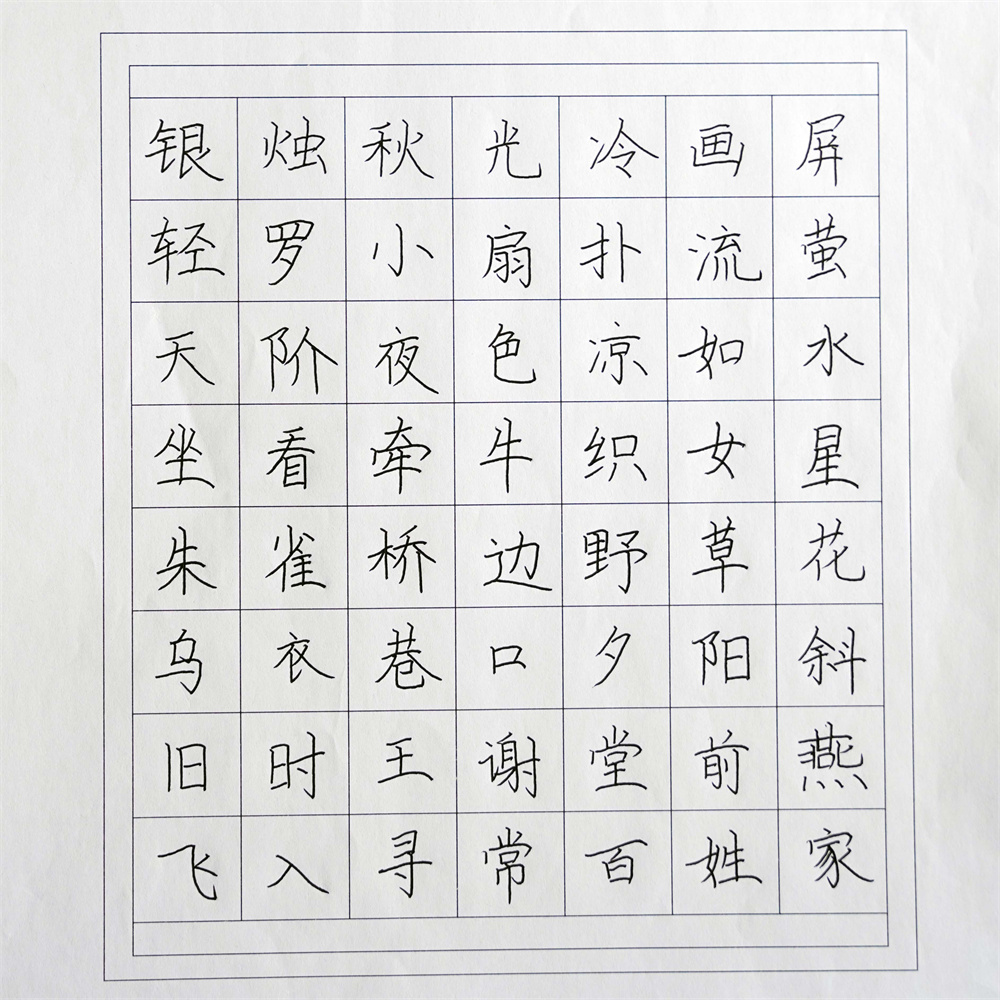 银烛秋光冷画屏
轻罗小扇扑流萤
天阶夜色凉如水
坐看牵牛织女星
朱雀桥边野草花
乌衣巷口夕阳斜
旧时王谢堂前燕
飞入寻常百姓家